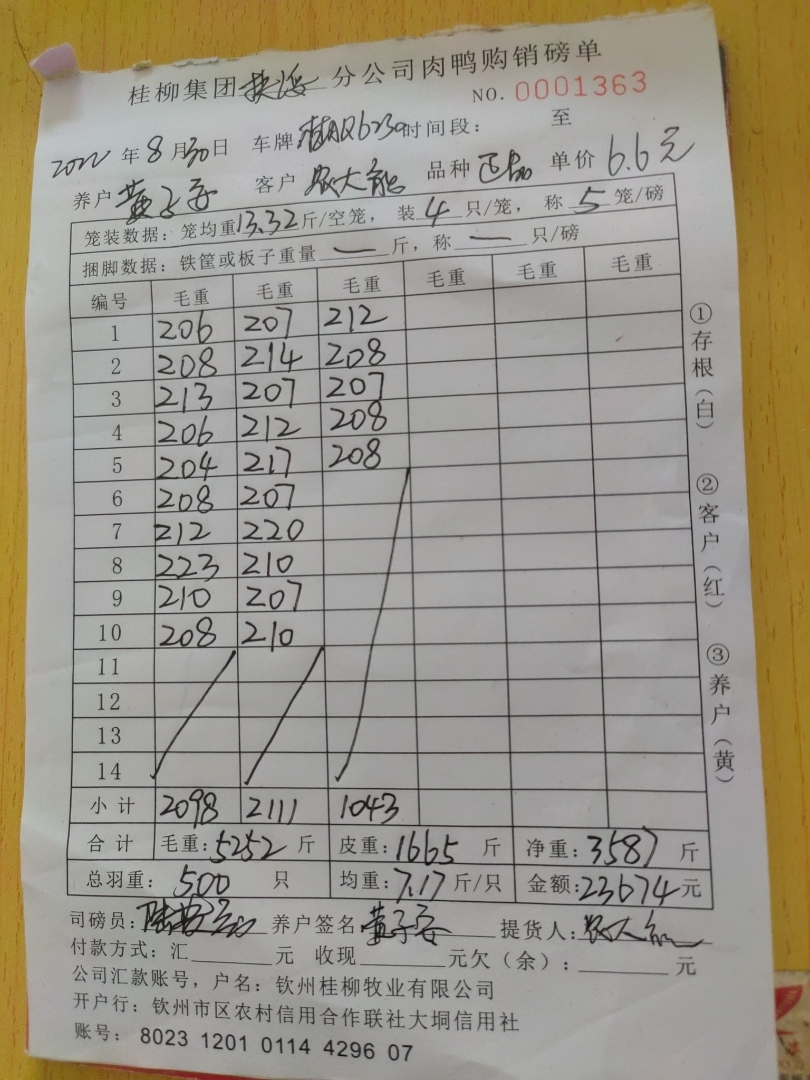 桂柳集团 分公司肉鸭购销磅单
NO. 0001363
2022 年 8 月 30 日 车牌 时间段： 至
养户 黄子 客户 农大 品种 正品 单价 6.6元
笼装数据：笼均重13.32斤/空笼，装 4 只/笼，称 5 笼/磅
捆脚数据：铁筐或板子重量 一 斤，称 一 只/磅
编号 毛重 毛重 毛重 毛重 毛重 毛重
1 206 207 212
2 208 214 208
3 213 207 207
4 206 212 208
5 204 217 208
6 208 207
7 212 220
8 223 210
9 210 207
10 208 210
11
12
13
14
小计 2098 2111 1043
合计 毛重：5252 斤 皮重：1665 斤 净重：3587 斤
总羽重： 500 只 均重：7.17斤/只 金额：23674元
司磅员： 养户签名 黄子 提货人：农大
付款方式：汇 元 收现 元欠（余）： 元
公司汇款账号，户名：钦州桂柳牧业有限公司
开户行：钦州市区农村信用合作联社大垌信用社
账号： 8023 1201 0114 4296 07
①存根（白） ②客户（红） ③养户（黄）